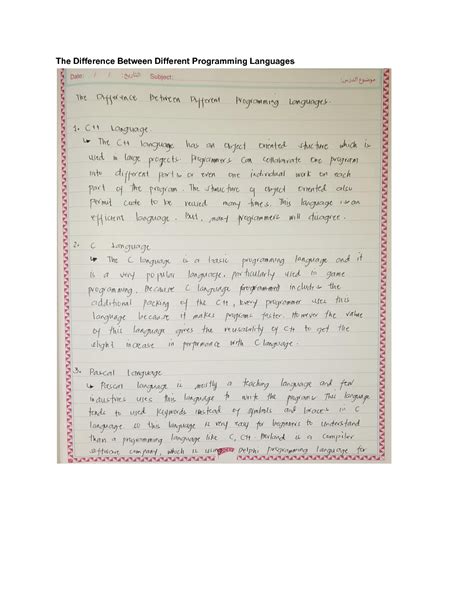 The Difference Between Different Programming Languages
Date: / / التاريخ: Subject: موضوع الدرس:
The Difference Between Different Programming Languages.
1. C++ Language.
↳ The C++ language has an object oriented structure which is
used in large projects. Programmers can collaborate one program
into different parts or even one individual work on each
part of the program. The structure of object oriented also
permit code to be reused many times. This language is an
efficient language. But, many programmers will disagree.
2. C Language
↳ The C language is a basic programming language and it
is a very popular language, particularly used in game
programming, Because C language includes the
additional packing of the C++, Every programmer uses this
language because it makes programs faster. However the value
of this language gives the reusability of C++ to get the
slight increase in performance with C language.
3. Pascal Language
↳ Pascal language is mostly a teaching language and few
industries uses this language to write the programs. This language
tends to used keywords instead of symbols and braces in C
language. So this language is very easy for beginners to understand
than a programming language like C, C++. Borland is a compiler
software company, which is using Delphi programming language for